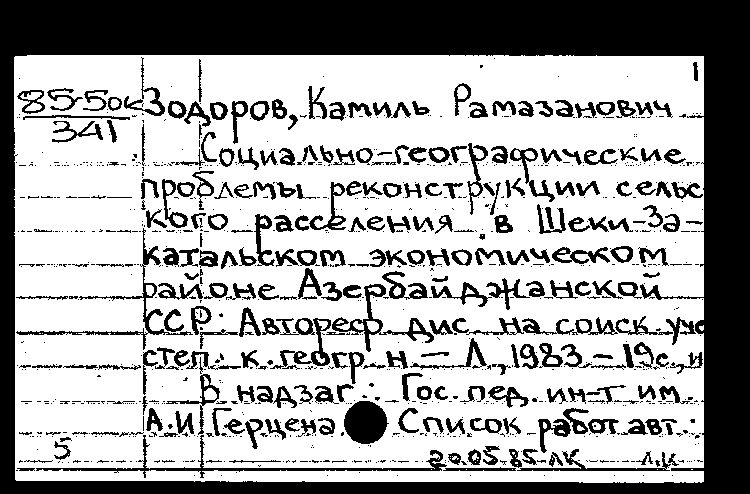 1
85-50к Зодоров, Камиль Рамазанович
341
Социально-географические
проблемы реконструкции сельс
кого расселения в Шеки-За-
катальском экономическом
районе Азербайджанской
ССР: Автореф. дис. на соиск. уче
степ. к. геогр. н. — Л., 1983 - 19 с., и
В надзаг.: Гос. пед. ин-т им.
А.И. Герцена Список работ авт.:
5
20.05.85 ЛК Л.К